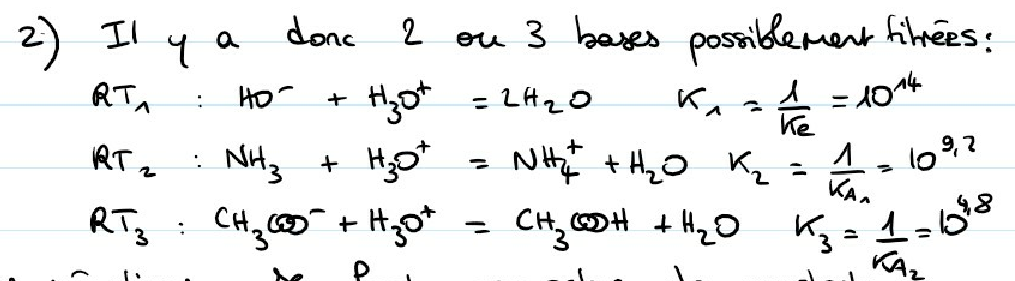 2) Il y a donc 2 ou 3 bases possiblement titrées :
RT₁ : HO⁻ + H₃O⁺ = 2H₂O K₁ = 1/Ke = 10¹⁴
RT₂ : NH₃ + H₃O⁺ = NH₄⁺ + H₂O K₂ = 1/KA₁ = 10⁹,²
RT₃ : CH₃COO⁻ + H₃O⁺ = CH₃COOH + H₂O K₃ = 1/KA₂ = 10⁴,⁸